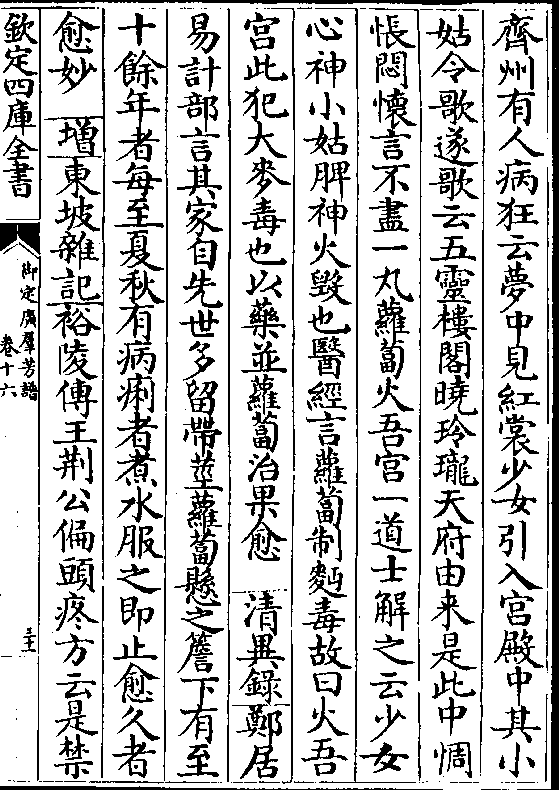 齊州有人病狂云夢中見紅裳少女引入宮殿中其小
姑令歌遂歌云五靈樓閣曉玲瓏天府由来是此中惆
悵悶懷言不盡一丸蘿蔔火吾宮一道士解之云少女
心神小姑脾神火毁也醫經言蘿蔔制麪毒故曰火吾
宮此犯大麥毒也以藥並蘿蔔治果愈　清異錄鄭居
易計部言其家自先世多留帶莖蘿蔔懸之簷下有至
十餘年者每至夏秋有病痢者煮水服之即止愈久者
愈妙　增東坡雜記裕陵傳王荆公偏頭疼方云是禁
欽定四庫全書
御定廣羣芳譜
卷十六